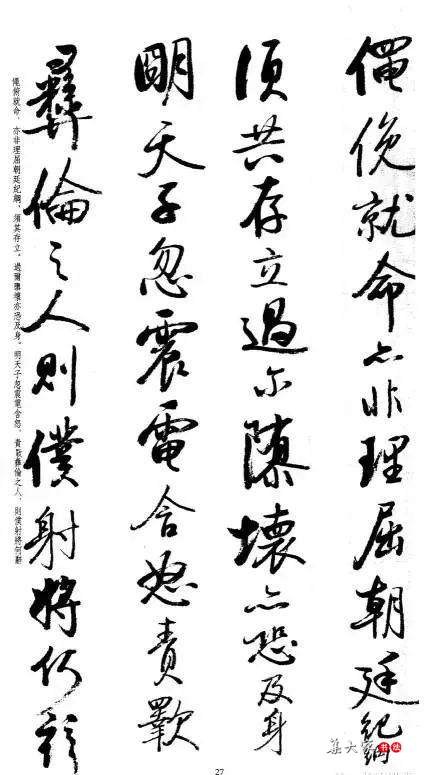 僶俛就命亦非理屈朝廷紀綱
須共存立過尔隳壞亦恐及身
明天子忽震電含怒責斁
彝倫之人則僕射將何辭
僶俯就命、亦非理屈朝廷紀綱、須其存立。過爾隳壞亦恐及身。明天子忽震電含怒、責斁彝倫之人、則僕射將何辭
27
集大家书法